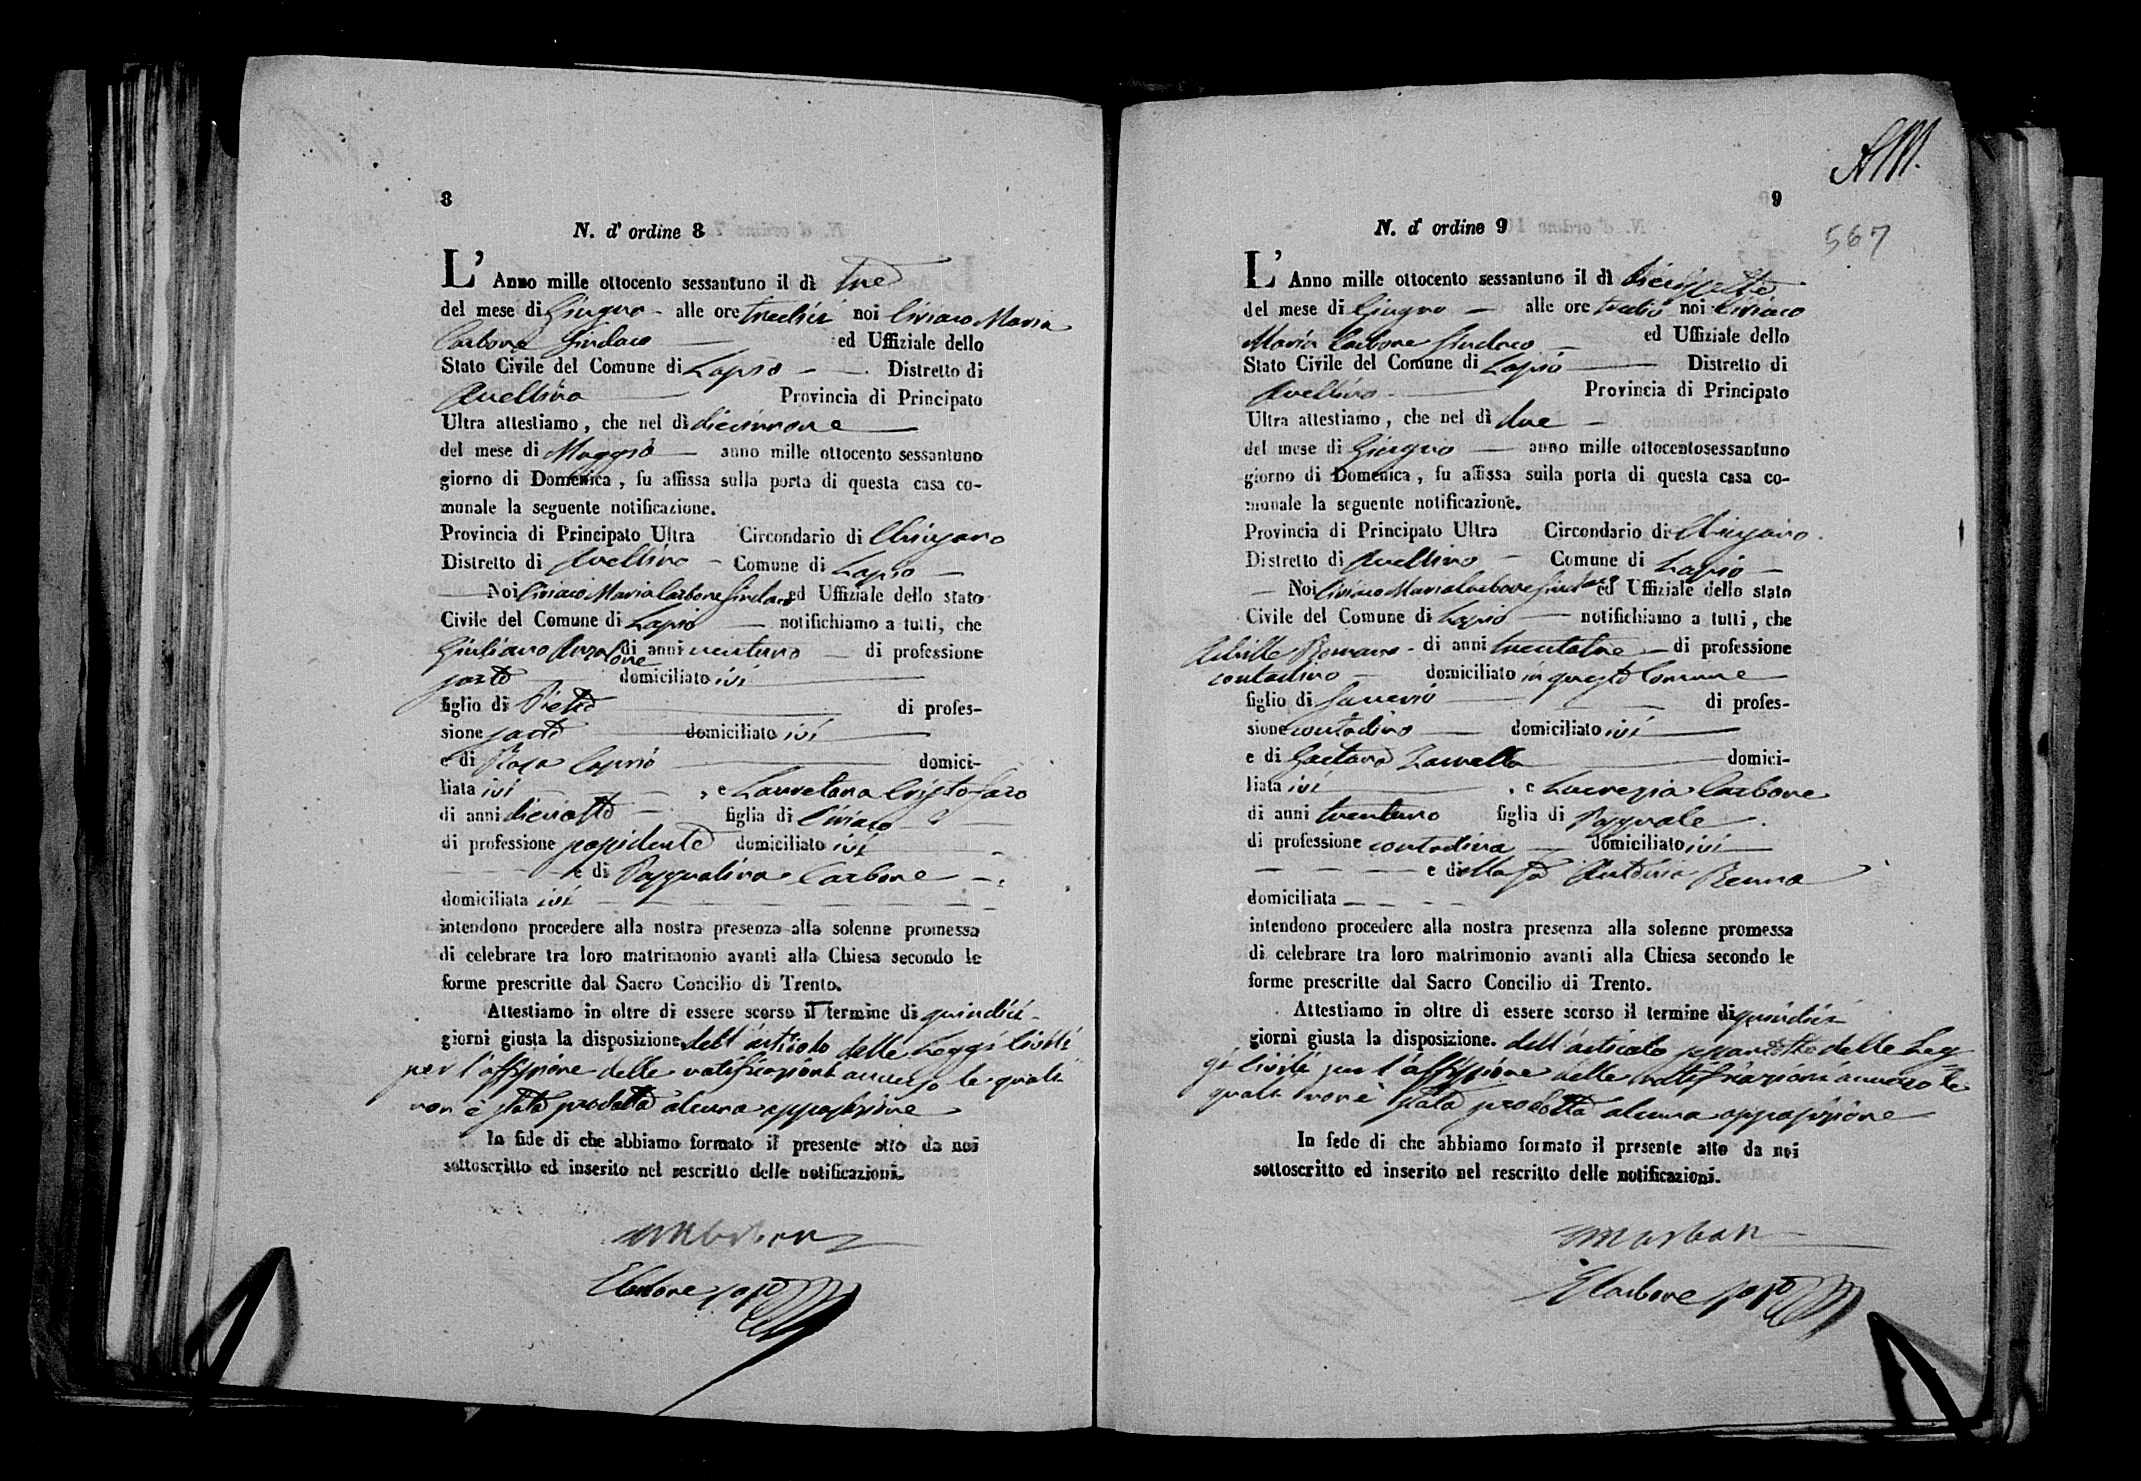 8
N. d' ordine 8
L' Anno mille ottocento sessantuno il dì tre
del mese di Giugno - alle ore tredici noi Ciriaco Maria
Carbone Sindaco ed Uffiziale dello
Stato Civile del Comune di Lapio - Distretto di
Avellino Provincia di Principato
Ultra attestiamo, che nel dì diciannove
del mese di Maggio anno mille ottocento sessantuno
giorno di Domenica, fu affissa sulla porta di questa casa co-
munale la seguente notificazione.
Provincia di Principato Ultra Circondario di Chiusano
Distretto di Avellino - Comune di Lapio
Noi Ciriaco Maria Carbone Sindaco ed Uffiziale dello stato
Civile del Comune di Lapio notifichiamo a tutti, che
Giuliano Anzalone di anni ventuno di professione
domiciliato ivi
figlio di Pietro di profes-
sione domiciliato ivi
e di Rosa Caprio domici-
liata ivi, e Lauretana Cristofaro
di anni diciotto figlia di Ciriaco
di professione possidente domiciliato ivi
e di Pasqualina Carbone
domiciliata ivi
intendono procedere alla nostra presenza alla solenne promessa
di celebrare tra loro matrimonio avanti alla Chiesa secondo le
forme prescritte dal Sacro Concilio di Trento.
Attestiamo in oltre di essere scorso il termine di quindici
giorni giusta la disposizione dell' articolo delle Leggi Civili
per l'affissione delle notificazioni avverso le quali
non è stata prodotta alcuna opposizione
In fide di che abbiamo formato il presente atto da noi
sottoscritto ed inserito nel rescritto delle notificazioni.
Carbone
9
567
N. d' ordine 9
L' Anno mille ottocento sessantuno il dì diciassette
del mese di Giugno alle ore tredici noi Ciriaco
Maria Carbone Sindaco ed Uffiziale dello
Stato Civile del Comune di Lapio Distretto di
Avellino Provincia di Principato
Ultra attestiamo, che nel dì due
del mese di Giugno anno mille ottocentosessantuno
giorno di Domenica, fu affissa sulla porta di questa casa co-
munale la seguente notificazione.
Provincia di Principato Ultra Circondario di Chiusano.
Distretto di Avellino - Comune di Lapio
Noi Ciriaco Maria Carbone Sindaco ed Uffiziale dello stato
Civile del Comune di Lapio notifichiamo a tutti, che
Achille Romano - di anni trentatre di professione
contadino domiciliato in questo Comune
figlio di Saverio di profes-
sione contadino domiciliato ivi
e di Gaetana Zarrella domici-
liata ivi, e Lucrezia Carbone
di anni trentuno figlia di Pasquale
di professione contadina domiciliato ivi
e di Antonia Renna
domiciliata
intendono procedere alla nostra presenza alla solenne promessa
di celebrare tra loro matrimonio avanti alla Chiesa secondo le
forme prescritte dal Sacro Concilio di Trento.
Attestiamo in oltre di essere scorso il termine di quindici
giorni giusta la disposizione. dell' articolo sessantotto delle Leg-
gi Civili per l'affissione delle notificazioni avverso le
quali non è stata prodotta alcuna opposizione
In fede di che abbiamo formato il presente atto da noi
sottoscritto ed inserito nel rescritto delle notificazioni.
Carbone